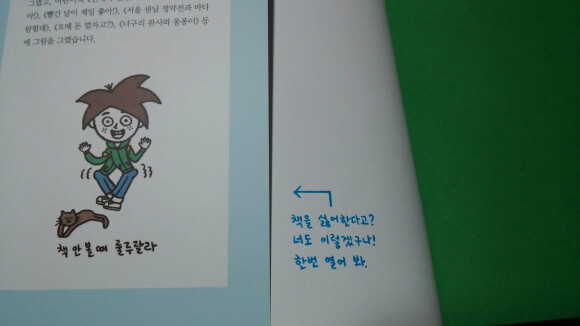 아!》, 《빨간 날이 제일 좋아!》, 《서울 샌님 정약전과 바다
탐험대》, 《오메 돈 벌자고?》, 《너구리 판사와 퐁퐁이》 등
에 그림을 그렸습니다.
책 안 볼 때 룰루랄라
책을 싫어한다고?
너도 이렇겠구나!
한번 열어 봐.